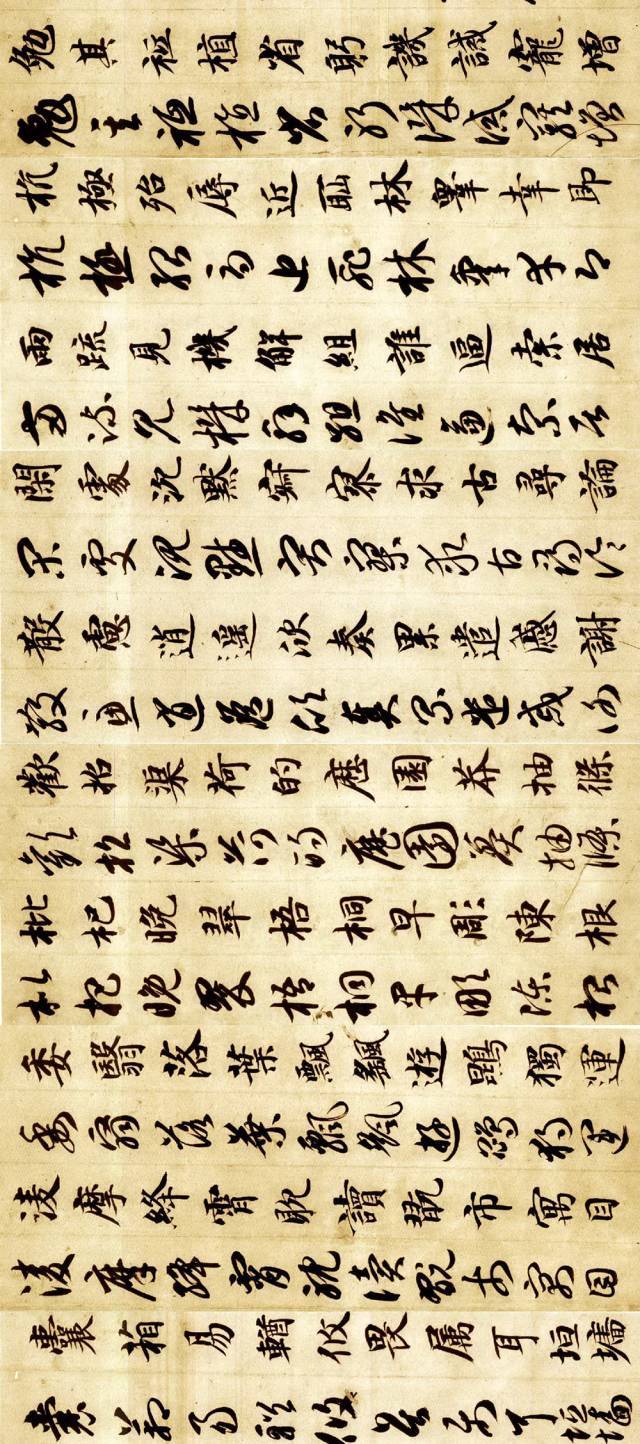 勉其祗植省躬譏誡寵增
勉其祗植省躬譏誡寵增
抗極殆辱近耻林皋幸即
抗極殆辱近耻林皋幸即
兩疏見機解組誰逼索居
兩疏見機解組誰逼索居
閑處沉默寂寥求古尋論
閑處沉默寂寥求古尋論
散慮逍遙欣奏累遣慼謝
散慮逍遙欣奏累遣慼謝
歡招渠荷的歷園莽抽條
歡招渠荷的歷園莽抽條
枇杷晚翠梧桐早彫陳根
枇杷晚翠梧桐早彫陳根
委翳落葉飄颻遊鵾獨運
委翳落葉飄颻遊鵾獨運
凌摩絳霄耽讀翫市寓目
凌摩絳霄耽讀翫市寓目
囊箱易輶攸畏属耳垣墻
囊箱易輶攸畏属耳垣墻